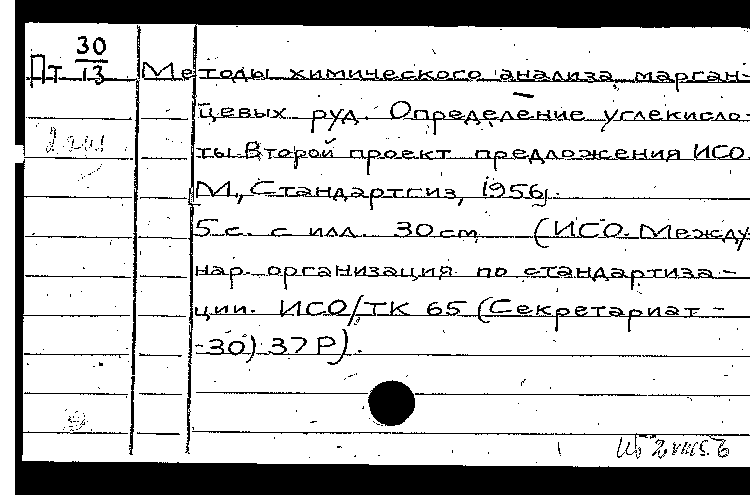 Пт 30/13 Методы химического анализа марган-
цевых руд. Определение углекисло-
ты. Второй проект предложения ИСО
М., Стандартгиз, 1956.
5 с. с илл. 30 см (ИСО. Между
нар. организация по стандартиза-
ции. ИСО/ТК 65 (Секретариат-
-30) 37 Р).